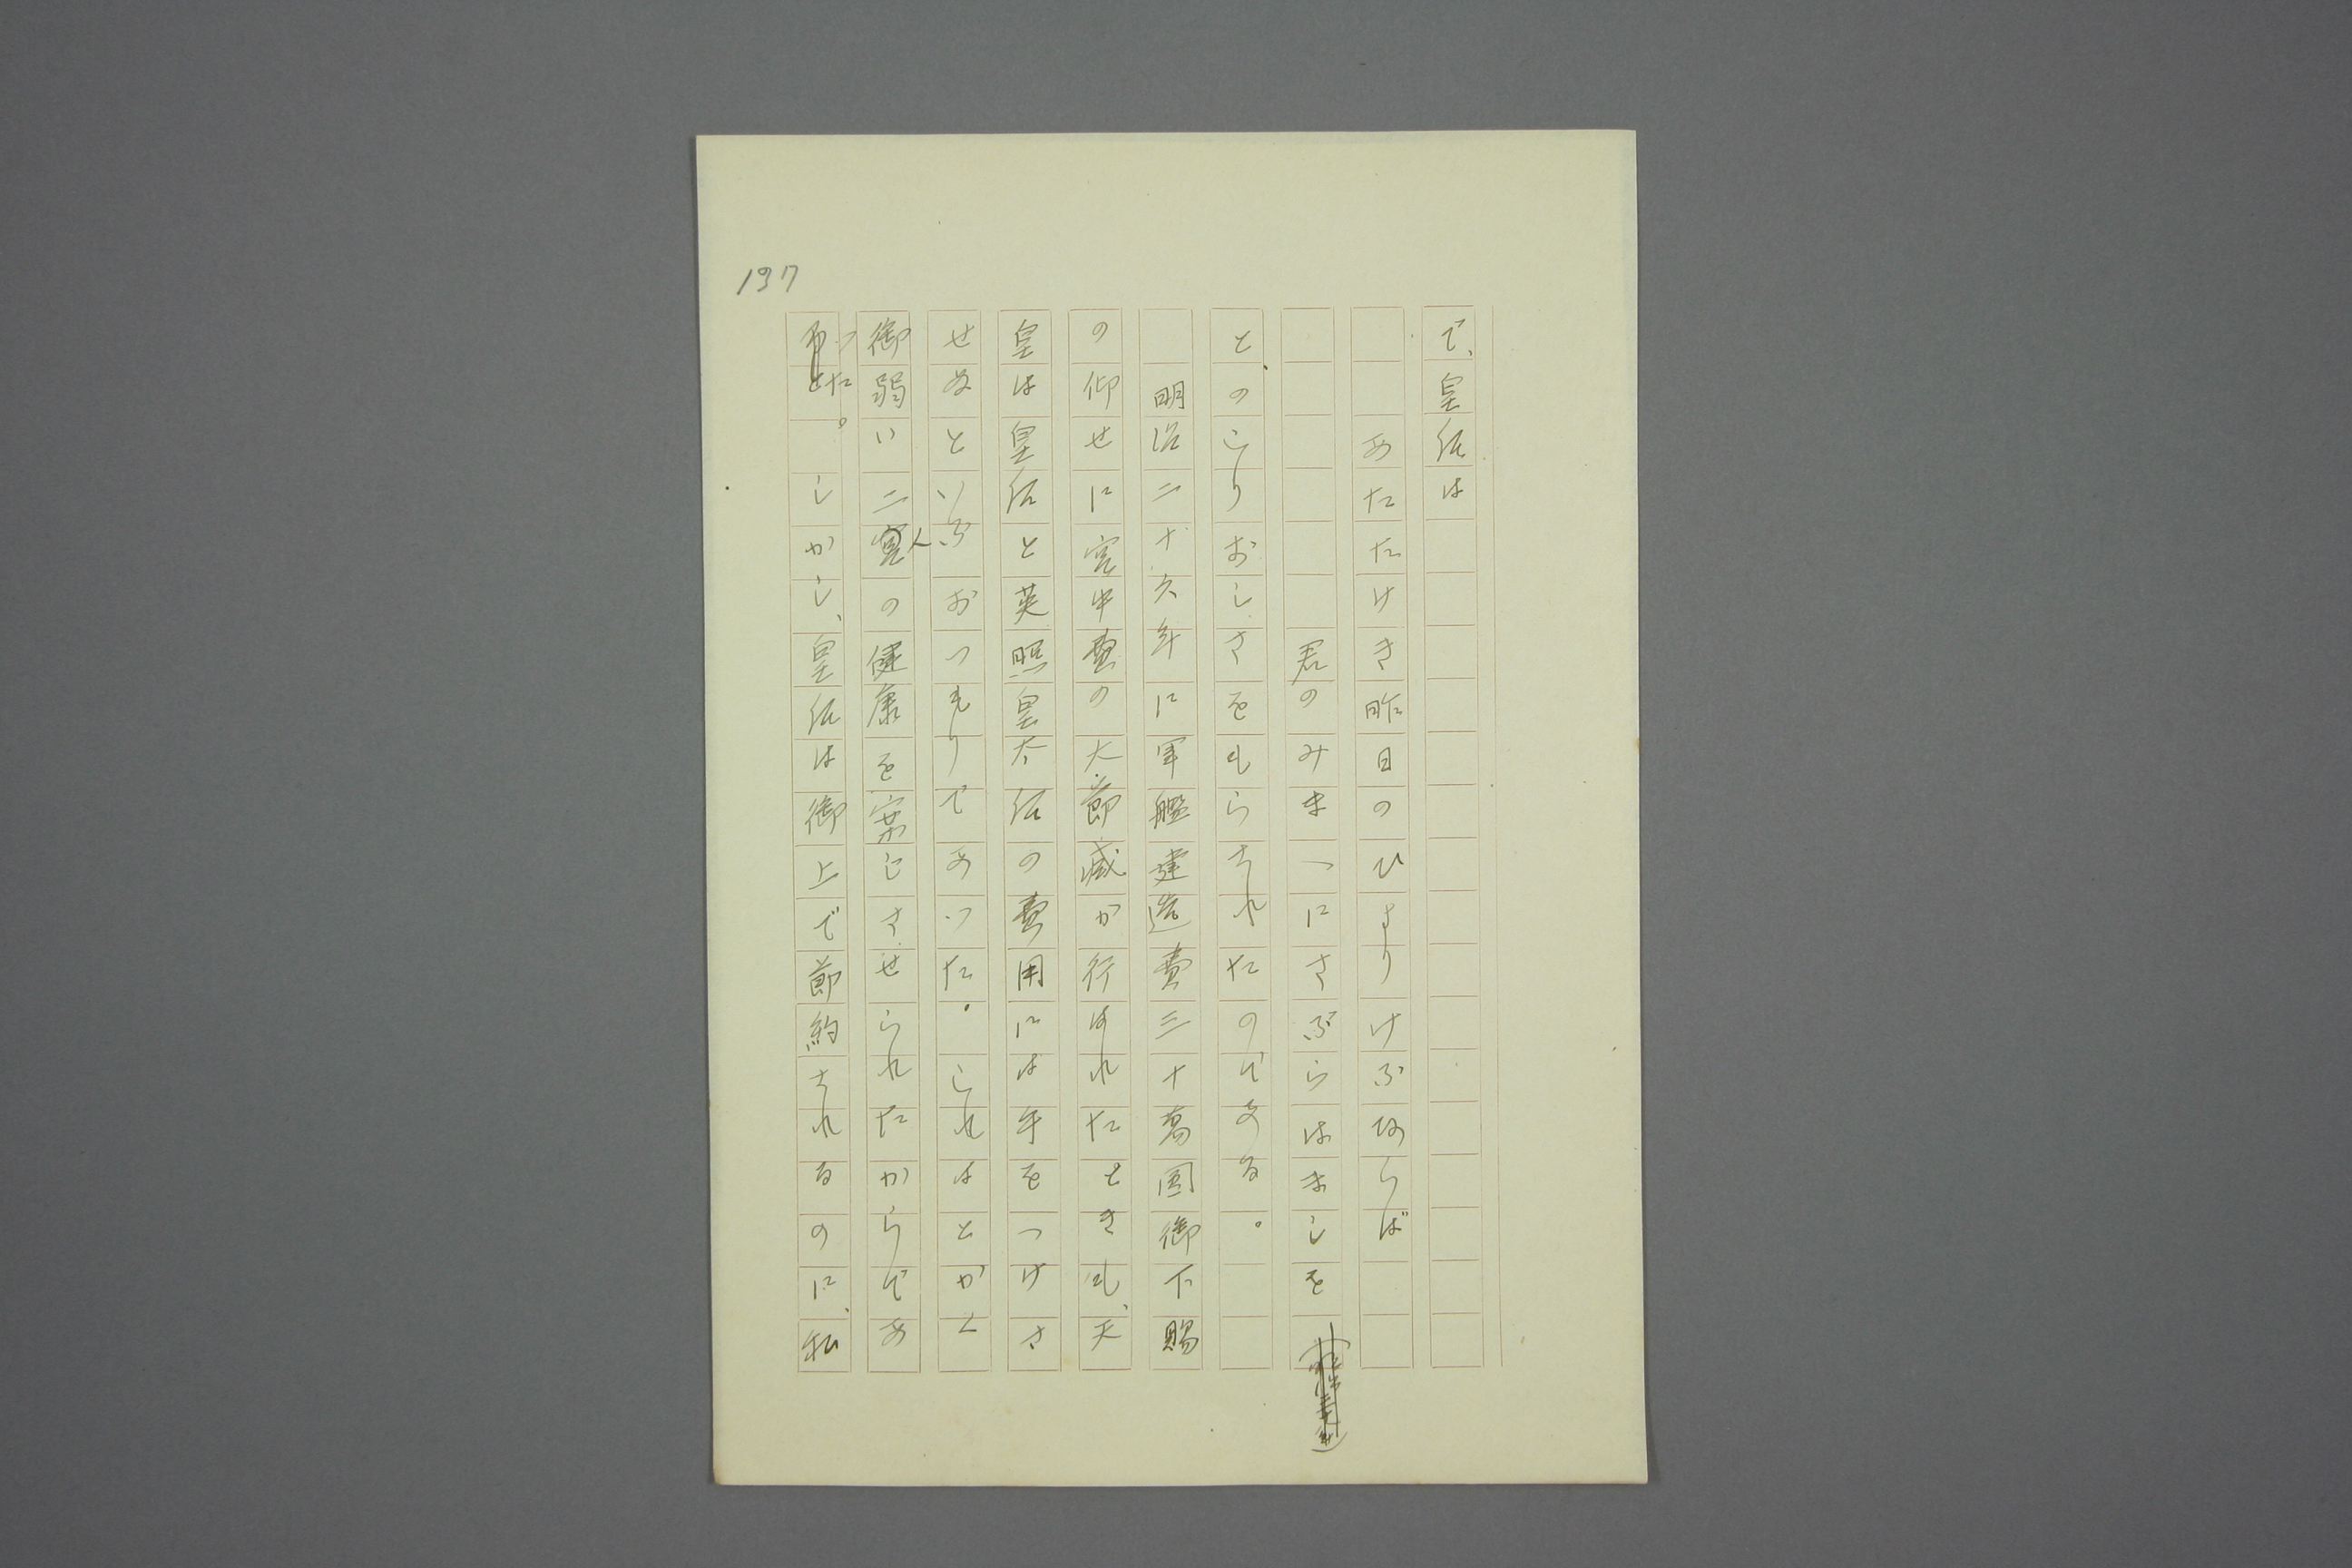 197
で、皇后は
あたたけき昨日のひよりけふならば
君のみまへにさぶらはましを
と、のこりおしさをもらされたのである。
明治二十六年に軍艦建造費三十萬圓御下賜
の仰せに宮中費の大節減が行はれたときも、天
皇は皇后と英照皇太后の費用には手をつけさ
せぬといふおつもりであつた。これはとかく
御弱い二人の健康を案じさせられたからであ
つた。しかし、皇后は御上で節約されるのに、私